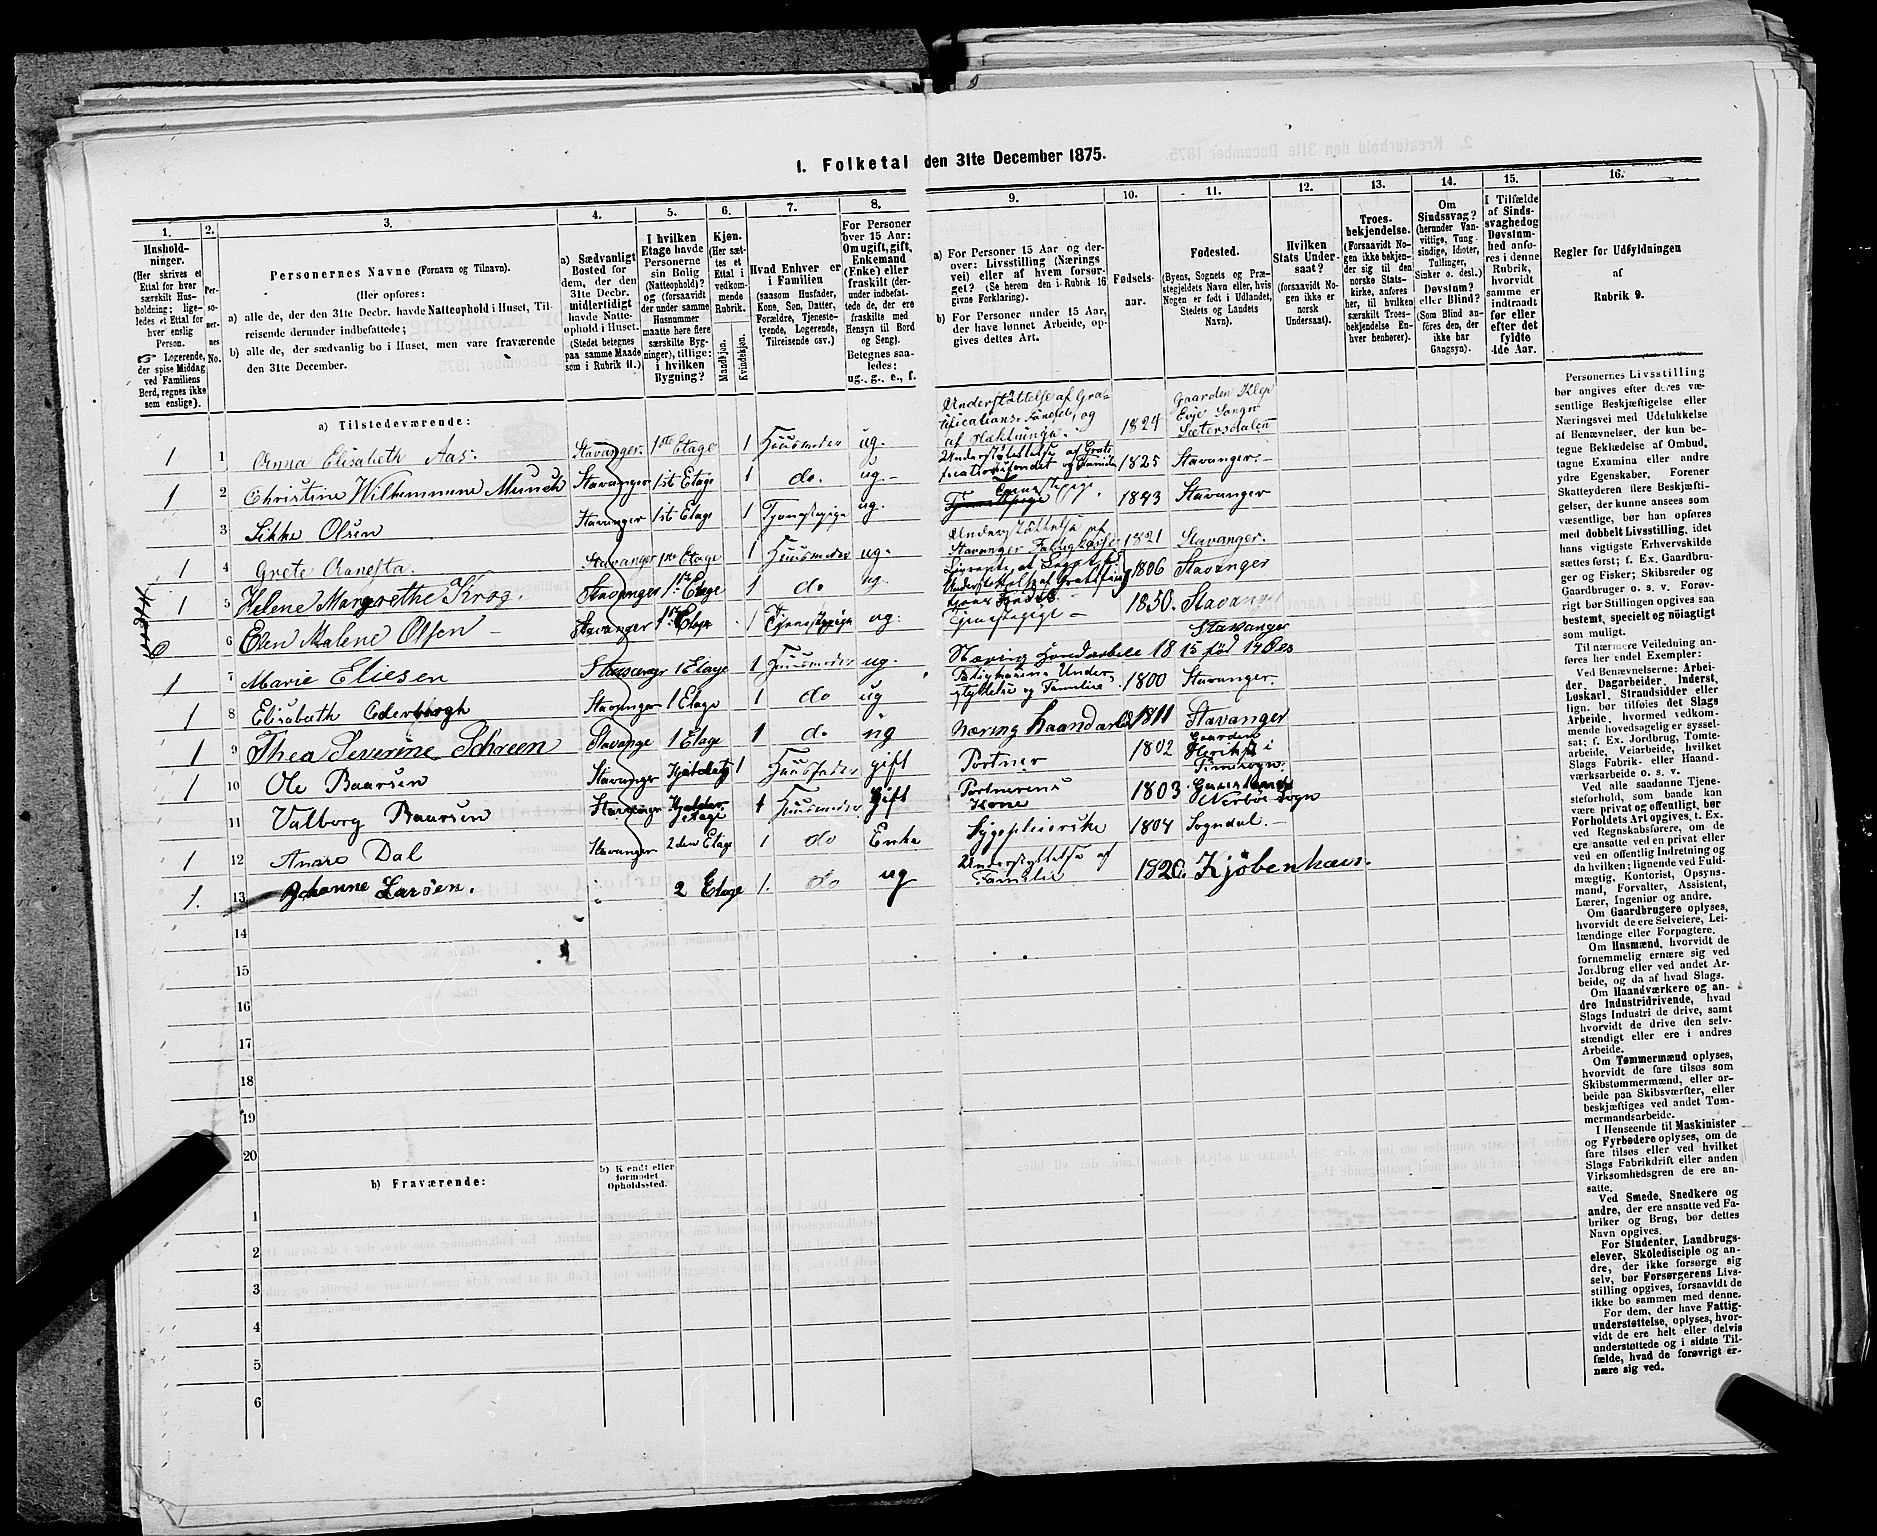 1. Folketal den 31te December 1875.
1.
Husholdninger.
(Her skrives et
Ettal for hver
særskilt Husholdning; ligeledes et Ettal for
hver enslig
Person.
Logerende,
der spise Middag
ved Familiens
Bord, regnes ikke
som enslige).
2.
Personernes
No.
3.
Personernes Navne (Fornavn og Tilnavn).
(Her opføres:
a) alle de, der den 31te Decbr. havde Natteophold i Huset, Tilreisende derunder indbefattede;
b) alle de, der sædvanlig bo i Huset, men vare fraværende
den 31te December.
4.
a) Sædvanligt
Bosted for
dem, der den
31te Decbr.
midlertidigt
havde Natteophold i Huset.
(Stedet betegnes
paa samme Maade
som i Rubrik 11.)
5.
I hvilken
Etage havde
Personerne
sin Bolig
(Natteophold)?
og (forsaavidt
der under samme
Husnummer
maatte høre flere
særskilte Bygninger), tillige:
i hvilken
Bygning?
6.
Kjøn.
(Her sættes et
Ettal i
vedkommende
Rubrik.
Mandkjøn.
Kvindekjøn.
7.
Hvad Enhver er
i Familien
(saasom Husfader,
Kone, Søn, Datter,
Forældre, Tjenestetyende, Logerende,
Tilreisende osv.)
8.
For Personer
over 15 Aar:
Om ugift, gift,
Enkemand
(Enke) eller
fraskilt (derunder indbefattede de, der ere
fraskilte med
Hensyn til Bord
og Seng).
Betegnes saaledes:
ug., g., e., f.
9.
a) For Personer 15 Aar og derover: Livsstilling (Næringsvei) eller af hvem forsørget? (Se herom den i Rubrik 16
givne Forklaring).
b) For Personer under 15 Aar,
der have lønnet Arbeide, opgives dettes Art.
10.
Fødselsaar.
11.
Fødested.
(Byens, Sognets og Præstegjeldets Navn eller, hvis
Nogen er født i Udlandet,
Stedets og Landets
Navn).
12.
Hvilken
Stats Undersaat?
(forsaavidt
Nogen ikke er
norsk
Undersaat).
13.
Troesbekjendelse.
(Forsaavidt Nogen ikke bekjender sig til den
norske Statskirke, anføres her, til hvilken
særskilt Troesbekjendelse Enhver henhører).
14.
Om
Sindssvag?
(herunder Vanvittige, Tungsindige, Idioter,
Tullinger,
Sinker o. desl.)
Døvstum?
eller Blind?
(Som Blind anføres den, der
ikke har
Gangsyn).
15.
I Tilfælde
af Sindssvaghed og
Døvstumhed anføres i denne
Rubrik,
hvorvidt
samme er
indtraadt
før eller
efter det
fyldte
4de Aar.
16.
Regler for Udfyldningen
af
Rubrik 9.
a) Tilstedeværende:
1 1 Anna Elisabeth Aas. Stavanger. 1ste Etage 1 Huusmoder ug. Understøttelse af Gratificationsfondet, og af Hæktninga. 1824 Gaarden Klep Evje Sogn Sætersdalen
1 2 Christine Wilhemmine Munch Stavanger 1ste Etage 1 do. ug. 1825 Stavanger.
3 Sikke Olsen Stavanger 1ste Etage 1 Tjenestepige ug. Tjenestepige. 1843 Stavanger
1 4 Grete Aanesta. Stavanger 1ste Etage 1 Huusmoder ug. Understøttelse af Stavanger Fattigkasse 1821 Stavanger.
1 5 Helene Margrethe Krog. Stavanger 1ste Etage 1 do ug. 1806 Stavanger
0 6 Elen Malene Olsen Stavanger 1ste Etage 1 Tjenestepige ug. Tjenestepige 1850. Stavanger
1 7 Marie Eliesen Stavanger 1 Etage 1 Huusmoder ug. Næring Haandarbeide 1815 Stavanger
1 8 Elisabeth Oderbørgh Stavanger 1 Etage 1 do ug Understyttelse og Familie 1800 Stavanger.
1 9 Thea Severine Schreen Stavange 1 Etage 1 do ug Næring Haandarbe 1811 Stavanger
1 10 Ole Baarsen Stavanger 1 Huusfader gift Portner 1802 Gaarden
11 Valborg Baarsen Stavanger Kjelderetage 1 Huusmoder Gift Portnerens Kone 1803
1 12 Anna Dal Stavanger 2den Etage 1 do Enke Sygepleierske 1804 Sogndal.
1. 13 Johanne Larsen. 2 Etage 1. do ug Understyttelse af Familie 1820. Kjöbenhavn.
14
15
16
17
18
19
20
b) Fraværende:
b) Kjendt eller
formodet
Opholdssted.
1
2
3
4
5
6
Personernes Livsstilling
bør angives efter deres væsentlige Beskjæftigelse eller
Næringsvei med Udelukkelse
af Benævnelser, der kun betegne Beklædelse af Ombud,
tagne Examina eller andre
ydre Egenskaber. Forener
Skatteyderen flere Beskjæftigelser, der kunne ansees som
væsentlige, bør han opføres
med dobbelt Livsstilling, idet
hans vigtigste Erhvervskilde
sættes først; f. Ex. Gaardbruger og Fisker; Skibsreder og
Gaardbruger o. s. v. Forøvrigt bør Stillingen opgives saa
bestemt, specielt og nöiagtigt
som muligt.
Til nærmere Veiledning anføres her endel Exempler:
Ved Benævnelserne: Arbeider, Dagarbeider, Inderst,
Løskarl, Strandsidder eller
lign. bør tilføies det Slags
Arbeide, hvormed vedkommende hovedsagelig er sysselsat; f. Ex. Jordbrug, Tomtearbeide, Veiarbeide, hvilket
Slags Fabrik- eller Haandværksarbeide o. s. v.
Ved alle saadanne Tjenesteforhold, som baade kan
være privat og offentligt, bør
Forholdets Art opgives, t. Ex.
ved Regnskabsførere, om de
ere ansatte ved en privat eller
ved en offentlig Indretning og
da hvilken; lignende ved Fuldmægtig, Kontorist, Opsynsmand, Forvalter, Assistent,
Lærer, Ingeniør og andre.
Om Gaardbrugere oplyses,
hvorvidt de ere Selveiere, Leilændinge eller Forpagtere.
Om Husmænd, hvorvidt de
fornemmelig ernære sig ved
Jordbrug eller ved andet Arbeide, og da af hvad Slags.
Om Haandværkere og andre Industridrivende, hvad
Slags Industri de drive, samt
hvorvidt de drive den selvstændigt eller ere i andres
Arbeide.
Om Tømmermænd oplyses,
hvorvidt de fare tilsøs som
Skibstømmermænd, eller arbeide paa Skibsværfter, eller
beskjæftiges ved andet Tømmermandsarbeide.
I Henseende til Maskinister
og Fyrbødere oplyses, om de
fare tilsøs eller ved hvilket
Slags Fabrikdrift eller anden
Virksomhedsgren de ere ansatte.
Ved Smede, Snedkere og
andre, der ere ansatte ved Fabriker og Brug, bør dettes
Navn opgives.
For Studenter, Landbrugselever, Skoledisciple og andre, der ikke forsørge sig
selv, bør Forsørgerens Livsstilling opgives, forsaavidt de
ikke bo sammen med denne.
For dem, der have Fattigunderstøttelse, oplyses, hvorvidt de ere helt eller delvis
understøttede og i sidste Tilfælde, hvad de forøvrigt ernære sig ved.